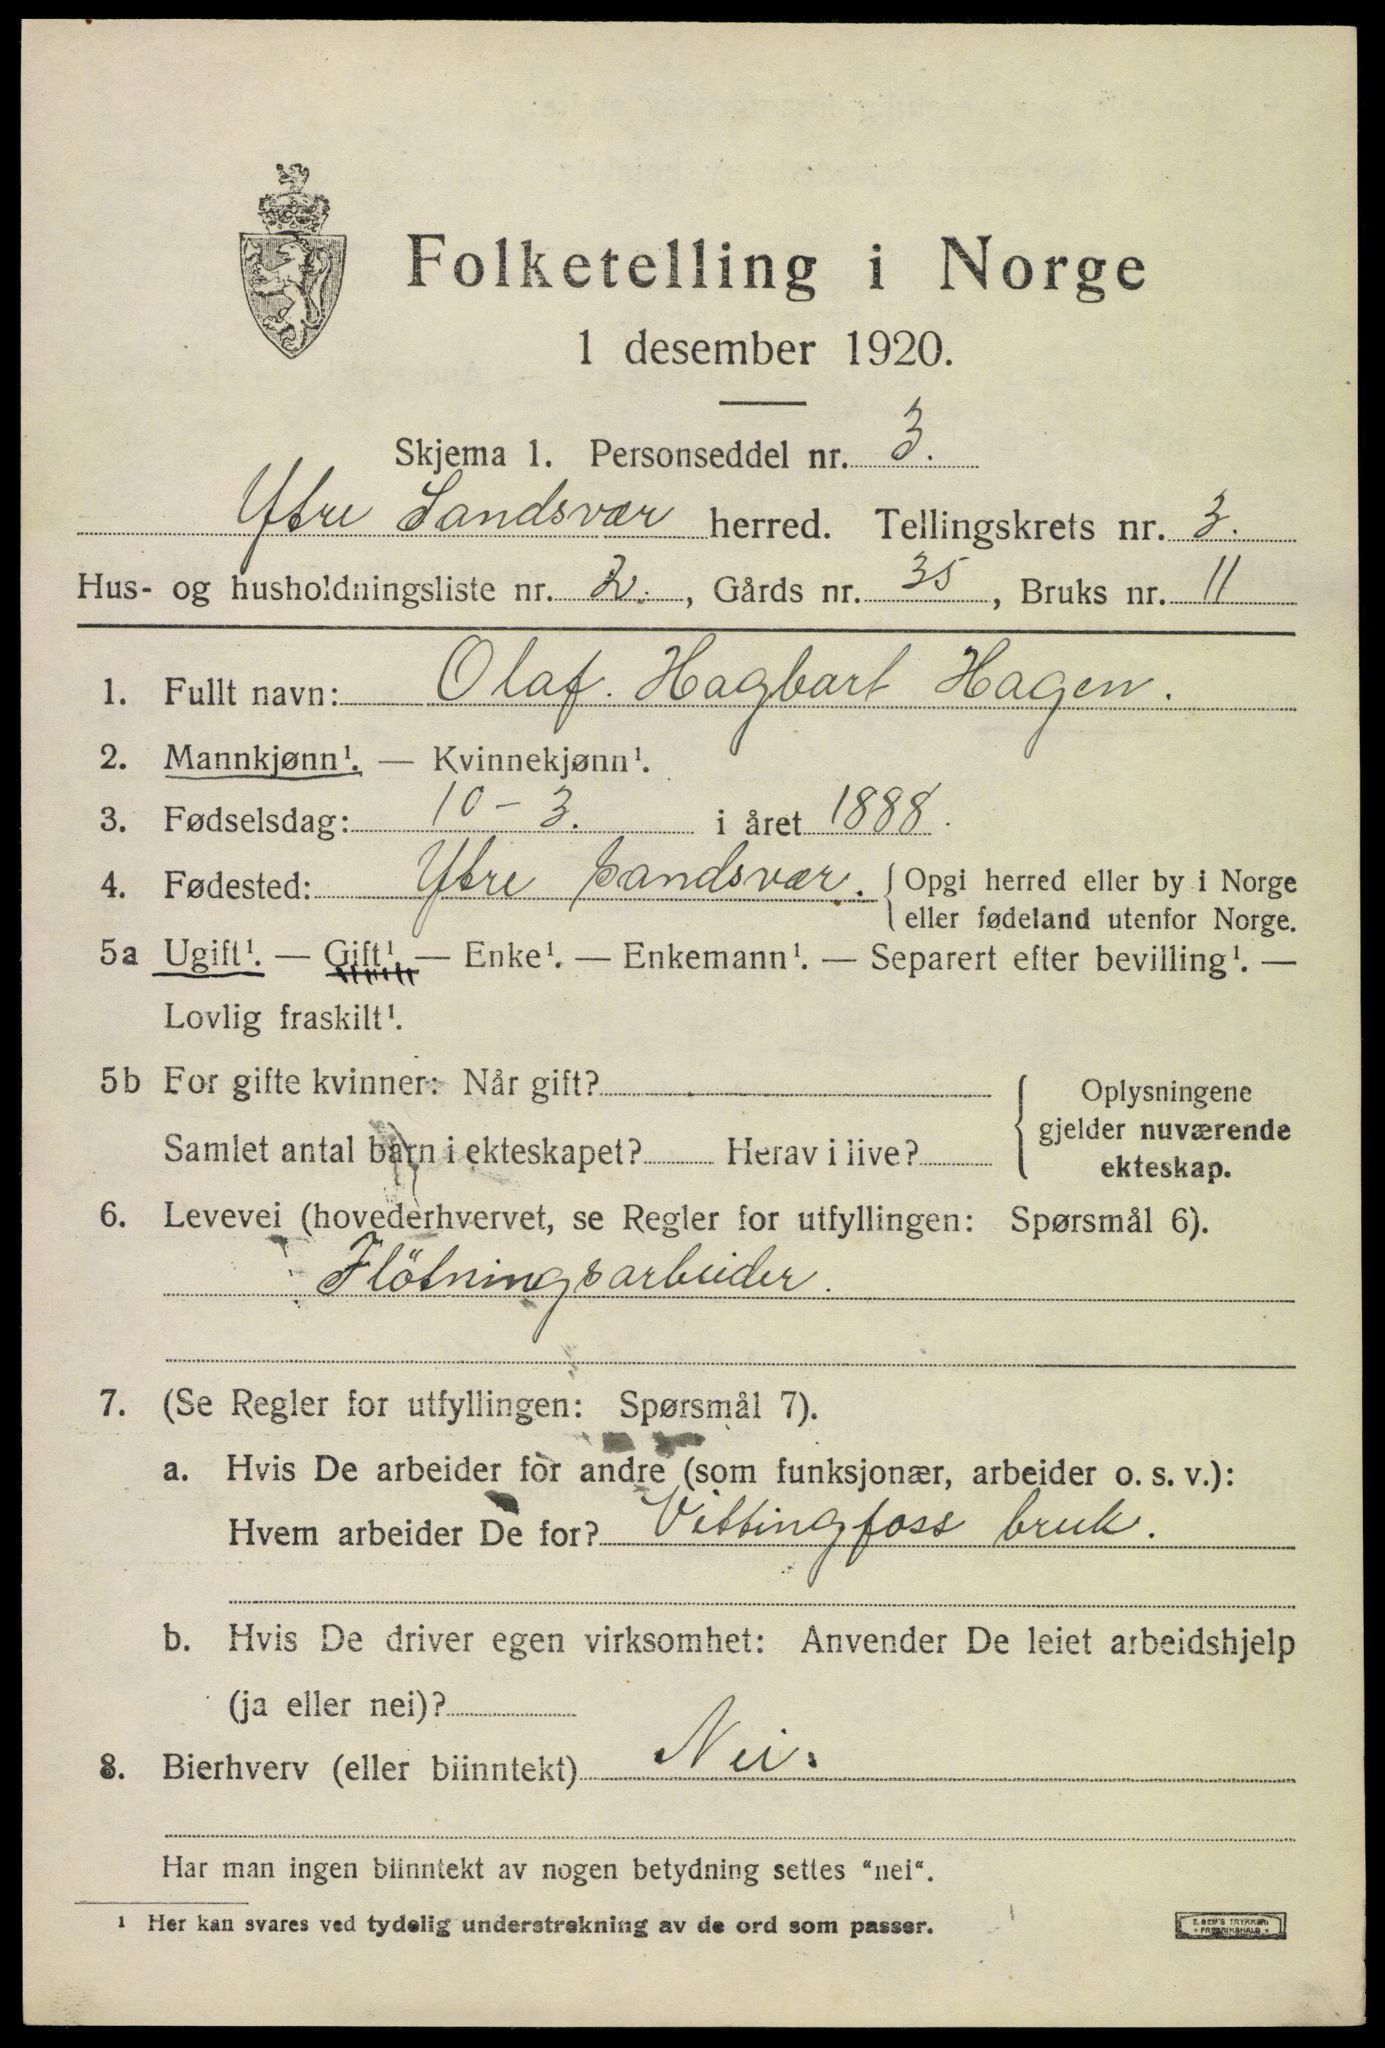 Folketelling i Norge
1 desember 1920.
Skjema 1. Personseddel nr. 3.
Ytre Sandsvær herred. Tellingskrets nr. 3.
Hus- og husholdningsliste nr. 2., Gårds nr. 35, Bruks nr. 11
1. Fullt navn: Olaf. Hagbart Hagen.
2. Mannkjønn¹. — Kvinnekjønn¹.
3. Fødselsdag: 10-3. i året 1888.
4. Fødested: Ytre Sandsvær. { Opgi herred eller by i Norge
eller fødeland utenfor Norge.
5a Ugift¹. — Gift¹. — Enke¹. — Enkemann¹. — Separert efter bevilling¹. —
Lovlig fraskilt¹.
5b For gifte kvinner: Når gift?
Samlet antal barn i ekteskapet? Herav i live?
{ Oplysningene
gjelder nuværende
ekteskap.
6. Levevei (hovederhvervet, se Regler for utfyllingen: Spørsmål 6).
Flötningsarbeider.
7. (Se Regler for utfyllingen: Spørsmål 7).
a. Hvis De arbeider for andre (som funksjonær, arbeider o. s. v.):
Hvem arbeider De for? Vittingfoss bruk.
b. Hvis De driver egen virksomhet: Anvender De leiet arbeidshjelp
(ja eller nei)?
8. Bierhverv (eller biinntekt) Nei.
Har man ingen biinntekt av nogen betydning settes "nei".
¹ Her kan svares ved tydelig understrekning av de ord som passer.
E. SEM'S TRYKKERI
FREDRIKSHALD